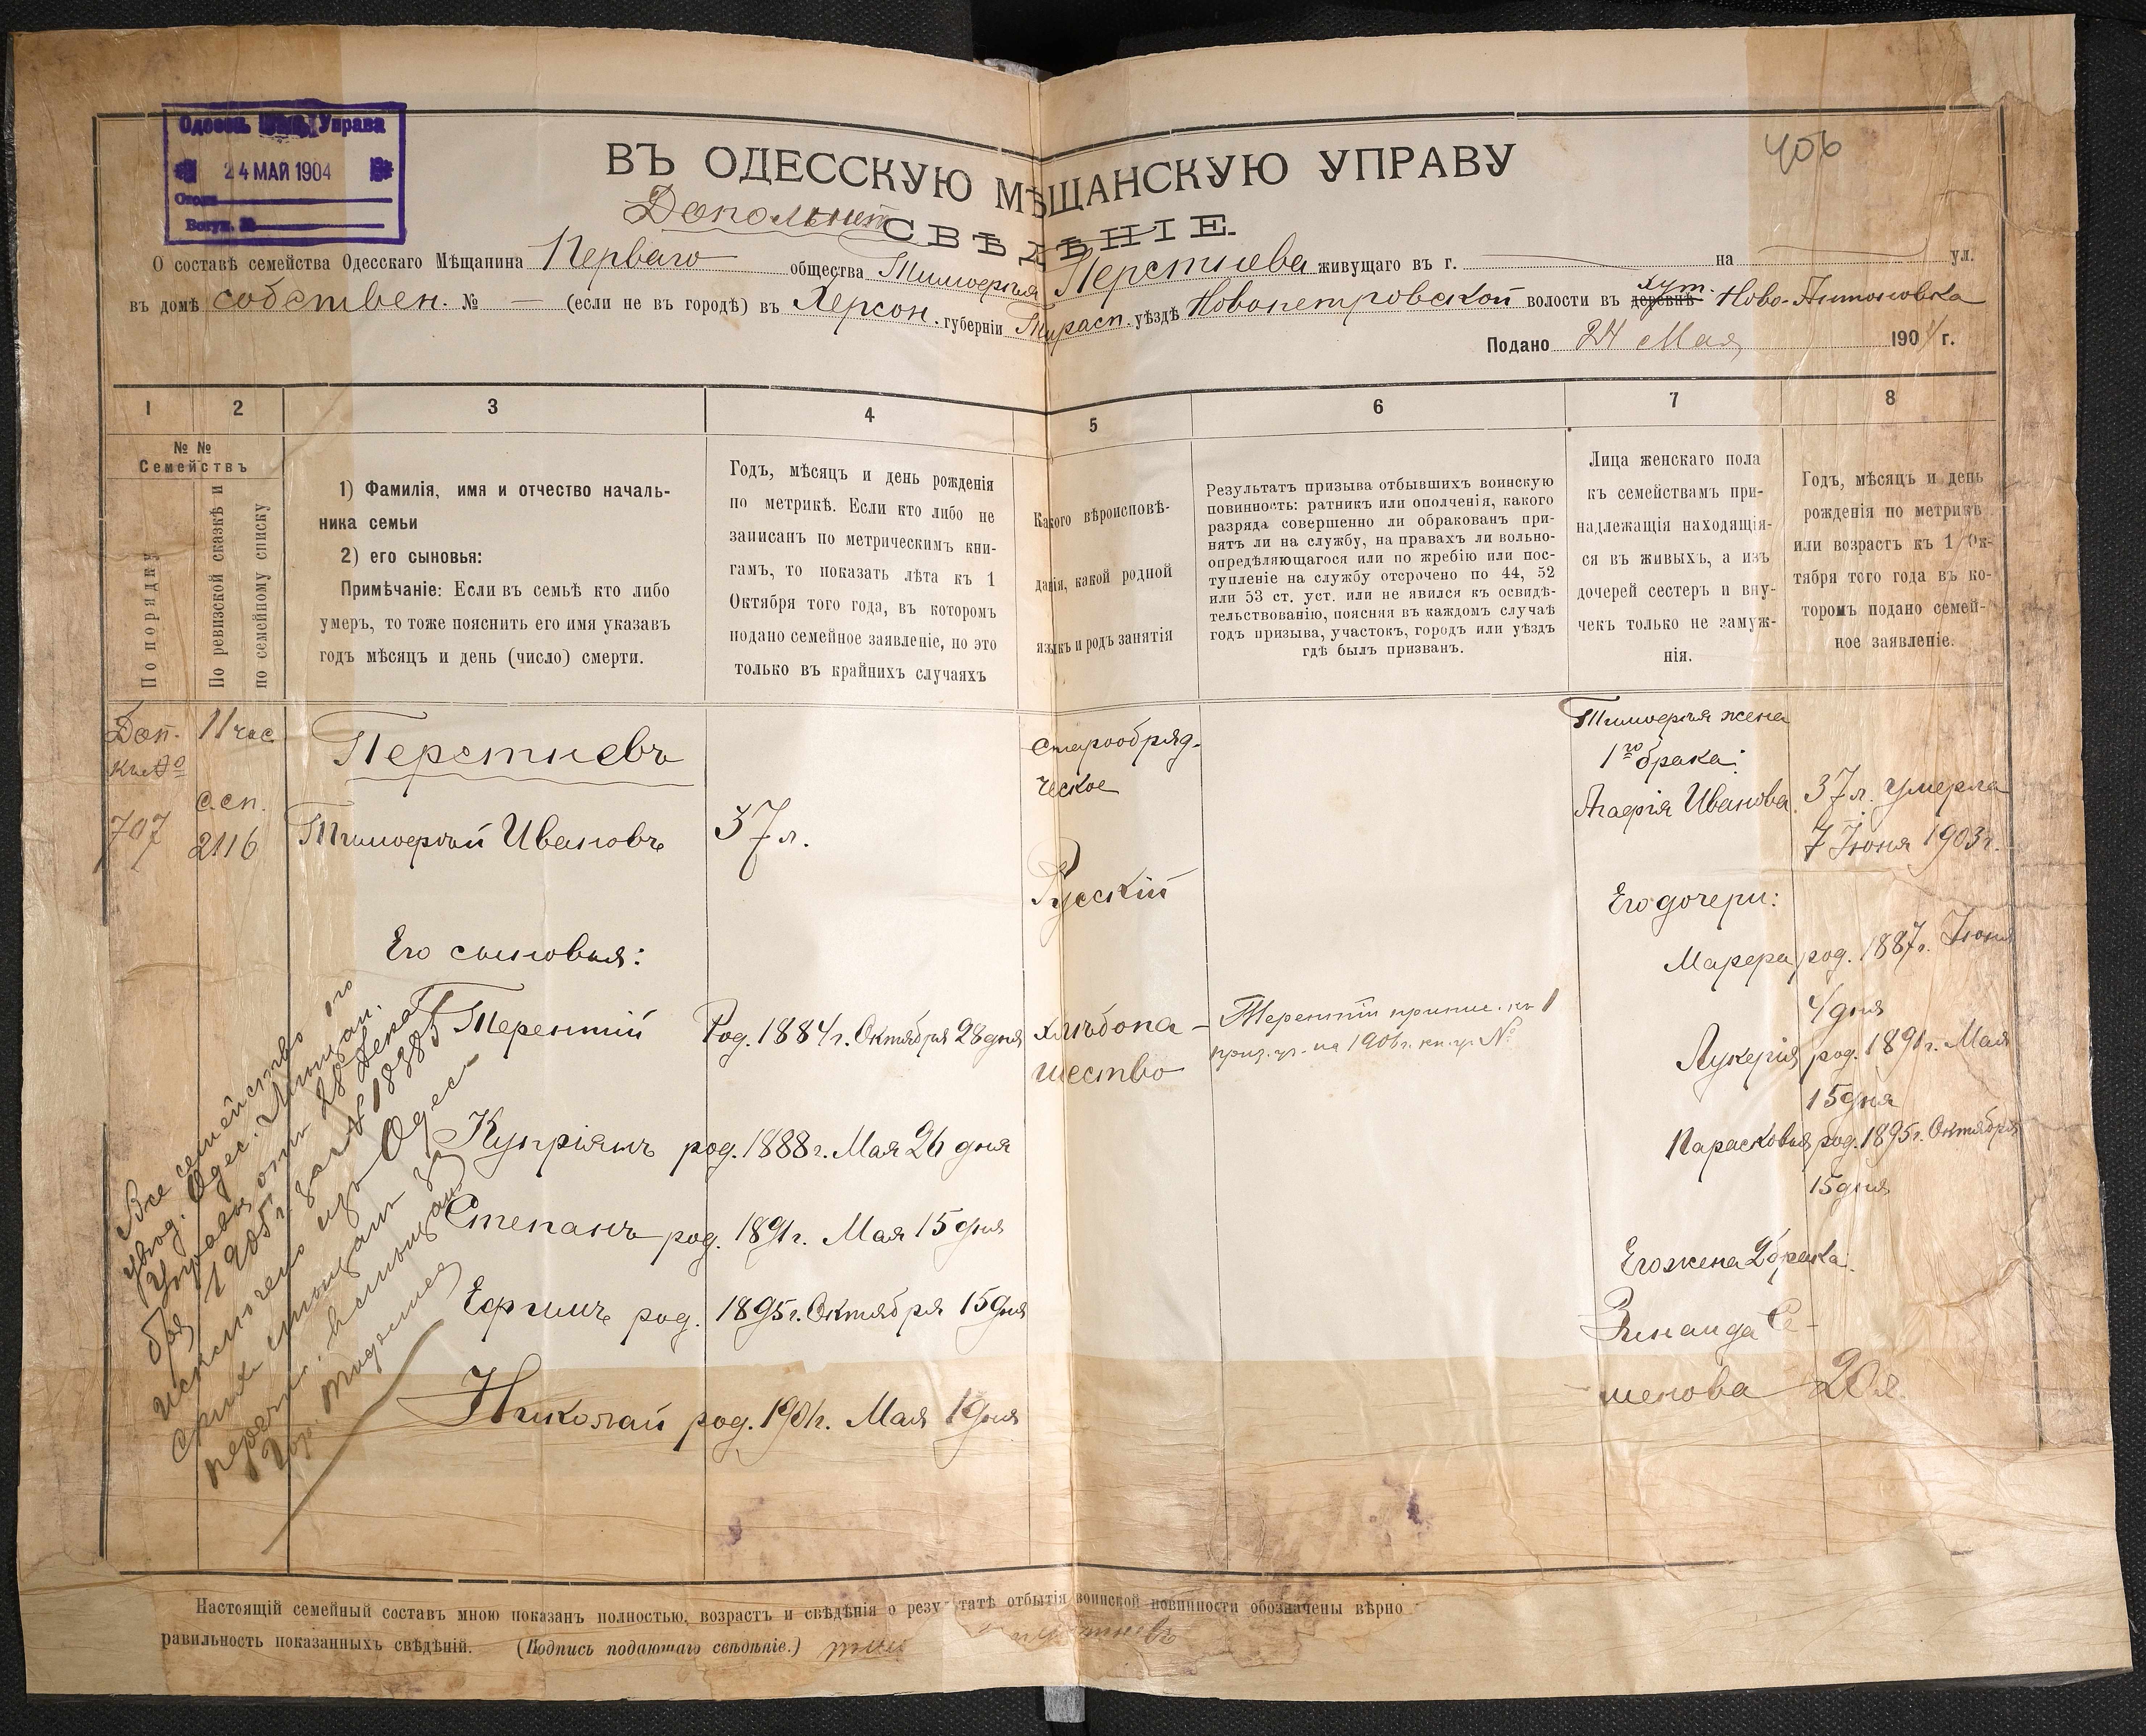 Одесск. Мѣщ. Управа
24 МАЙ 1904
Столъ
Вступ. №
406
ВЪ ОДЕССКУЮ МѢЩАНСКУЮ УПРАВУ
Дополнит.
СВѢДѢНІЕ.
О составѣ семейства Одесскаго Мѣщанина Перваго общества Тимофея Перстнева живущаго въ г. на ул.
въ домѣ собствен. № — (если не въ городѣ) въ Херсон. губерніи Тирасп. уѣздѣ Новопетровской волости въ деревнѣ хут. Ново-Антоновка
Подано 24 Мая 1904 г.
1 2 3 4 5 6 7 8
№ №
Семействъ
По порядку
По ревизской сказкѣ и
по семейному списку
1) Фамилія, имя и отчество началь-
ника семьи
2) его сыновья:
Примѣчаніе: Если въ семьѣ кто либо
умеръ, то тоже пояснить его имя указавъ
годъ мѣсяцъ и день (число) смерти.
Годъ, мѣсяцъ и день рожденія
по метрикѣ. Если кто либо не
записанъ по метрическимъ кни-
гамъ, то показать лѣта къ 1
Октября того года, въ которомъ
подано семейное заявленіе, но это
только въ крайнихъ случаяхъ
Какого вѣроисповѣ-
данія, какой родной
языкъ и родъ занятія
Результатъ призыва отбывшихъ воинскую
повинность: ратникъ или ополченія, какого
разряда совершенно ли обракованъ при-
нятъ ли на службу, на правахъ ли вольно-
опредѣляющагося или по жребію или пос-
тупленіе на службу отсрочено по 44, 52
или 53 ст. уст. или не явился къ освидѣ-
тельствованію, поясняя въ каждомъ случаѣ
годъ призыва, участокъ, городъ или уѣздъ
гдѣ былъ призванъ.
Лица женскаго пола
къ семействамъ при-
надлежащія находящія-
ся въ живыхъ, а изъ
дочерей сестеръ и вну-
чекъ только не замуж-
нія.
Годъ, мѣсяцъ и день
рожденія по метрикѣ
или возрастъ къ 1 Ок-
тября того года въ ко-
торомъ подано семей-
ное заявленіе.
Доп.
къ №
707
11 час
с. сп.
2116
Перстневъ
Тимофей Ивановъ
37 л.
Его сыновья:
Терентий
Род. 1884 г. Октября 28 дня
Купріянъ
род. 1888 г. Мая 26 дня
Степанъ
род. 1891 г. Мая 15 дня
Ефимъ
род. 1895 г. Октября 15 дня
Николай
род. 1901 г. Мая 19 дня
старообряд-
ческое
Русскій
хлѣбопа-
шество
Терентій припис. къ 1
приз. уч. на 1906 г.
Тимофея жена
1го брака:
Агафія Иванова
37 л. умерла
7 Іюня 1903 г.
Его дочери:
Марфа род. 1887 г. Іюня
4 дня
Лукерія род. 1891 г. Мая
15 дня
Парасковья род. 1895 г. Октября
15 дня
Его жена 2 брака:
Зинаида Се-
менова 20 л.
Все семейство по
увѣд. Одес. Мѣщан.
Управы отъ 28 Декаб
бря 1905 г. за № 18885
исключено изъ Одес-
скихъ мѣщанъ за
Настоящій семейный составъ мною показанъ полностью, возрастъ и свѣдѣнія о резу татѣ отбытія воинской повинности обозначены вѣрно
равильность показанныхъ свѣдѣній. (Подпись подающаго свѣдѣніе.)